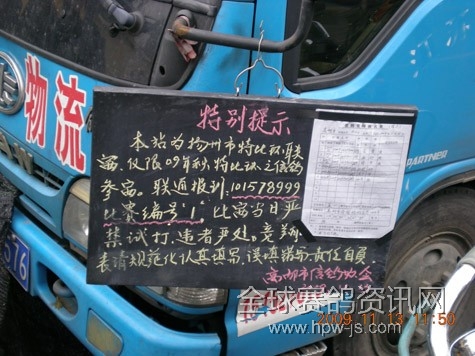 物流
特别提示
本站为扬州市特比环联
赛,仅限09年秋特比环之信鸽
参赛。联通报到:101578999
比赛编号"1",比赛当日严
禁试打,违者严处。竞翔
表请规范化认真填写,误填错写责任自负
高邮市信鸽协会
PARTNER
576
2009 11 13 11:50
全球赛鸽资讯网
www.hpw-js.com